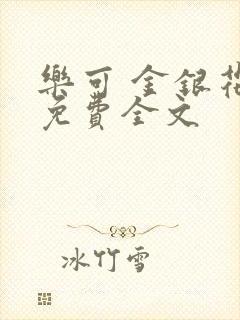 樂可 金銀花
免費全文
冰竹雪